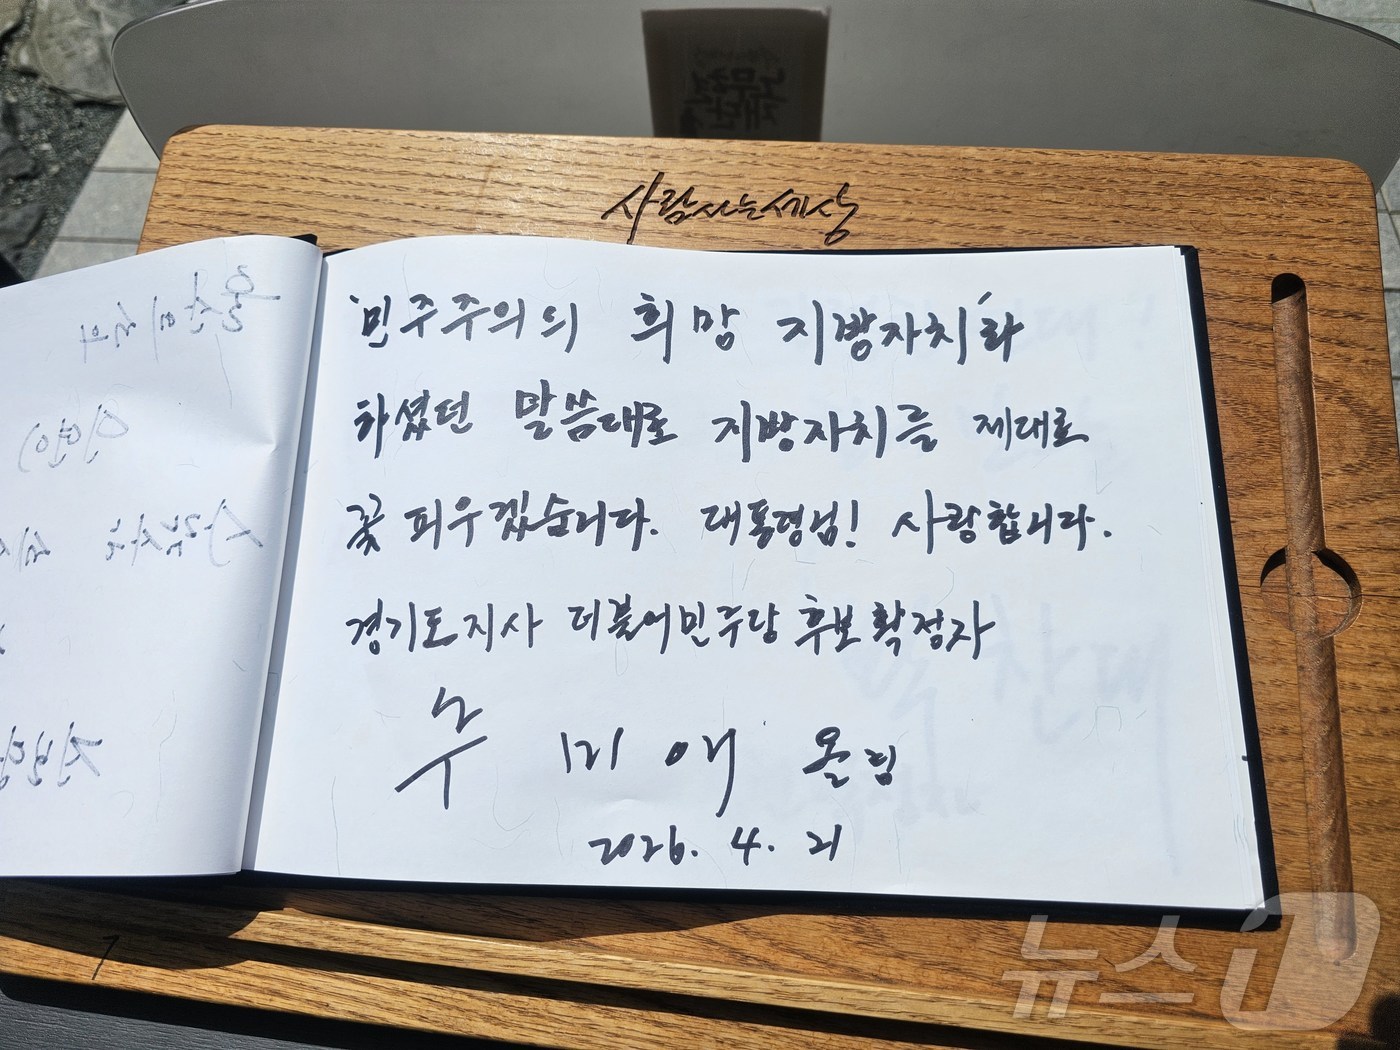 사람사는세상
'민주주의의 희망 지방자치'라
하셨던 말씀대로 지방자치를 제대로
꽃 피우겠습니다. 대통령님! 사랑합니다.
경기도지사 더불어민주당 후보 확정자
추 미 애 올림
2026. 4. 21
뉴스1